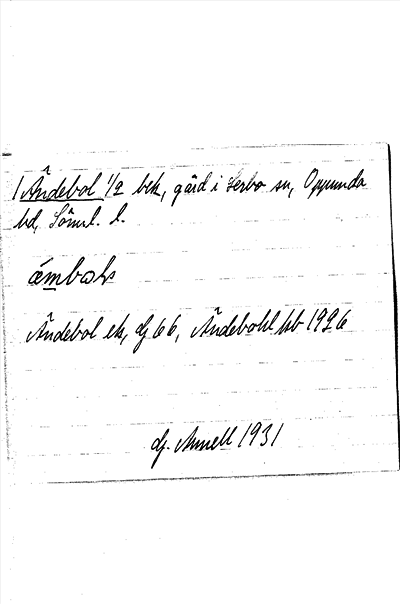 Åndebol 1/2 bek, gård i Lerbo sn, Oppunda
hd, Söml. l.
Ändebol ek, dj 66, Ändebohl kb 1926
dj. Annell 1931